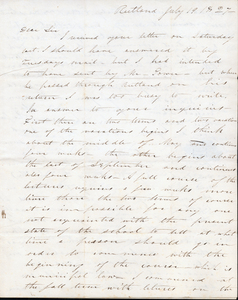 Rutland July 19.
Dear Sir
I received your letter on Saturday
and I should have answered it by
Tuesdays mail - but I had intended
to have sent by Mr. - but when
he passed through Rutland on
return I was too busy to write
In answer to your inquiries -
First then as to terms and vacations
one of the vacations begins I think
about the middle of May and continues
four weeks. the other begins about
the last of September and continues
also four weeks. A full course of the
lectures requires a few weeks more
time than the two terms of course
it is impossible for any one
not acquainted with the present
state of the school to tell at what
time a person should go in
order to commence with the
beginning of the course - which is
municipal law. I commenced at
the fall term with titles on the